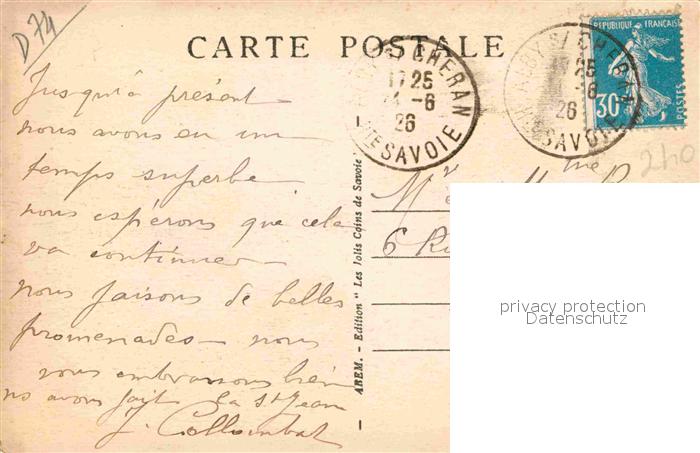 D 74
CARTE POSTALE
Jusqu'à présent
nous avons eu un
temps superbe
nous espérons que cela
va continuer
nous faisons de belles
promenades nous
vous embrassons bien
ns avons fait la St Jean
J. Collombat
AREM. - Edition " Les Jolis Coins de Savoie "
S/ CHERAN
17 25
24 -6
26
Hte SAVOIE
ALBY S/ CHERAN
17 25
-6
26
Hte SAVOIE
REPUBLIQUE FRANÇAISE
30
POSTES
240
Mr
me
6 Ru
privacy protection
Datenschutz